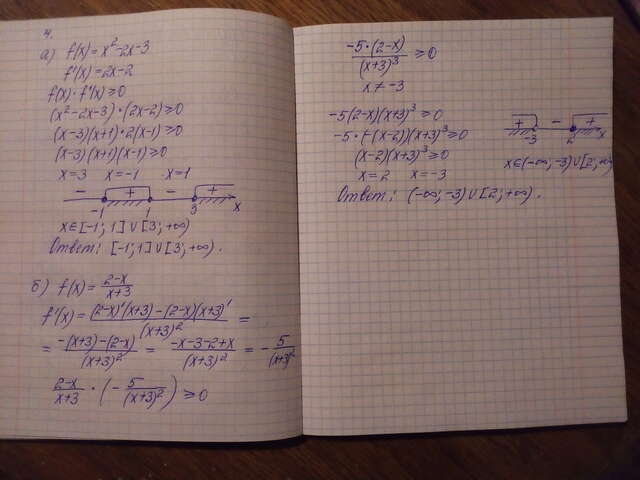 4.
а) f(x) = x² - 2x - 3
f'(x) = 2x - 2
f(x) · f'(x) ≥ 0
(x² - 2x - 3) · (2x - 2) ≥ 0
(x - 3)(x + 1) · 2(x - 1) ≥ 0
(x - 3)(x + 1)(x - 1) ≥ 0
x = 3 x = -1 x = 1
- + - +
-1 1 3 x
x ∈ [-1; 1] ∪ [3; +∞)
Ответ: [-1; 1] ∪ [3; +∞).
б) f(x) = (2-x)/(x+3)
f'(x) = ((2-x)'(x+3) - (2-x)(x+3)')/(x+3)² =
= (-(x+3) - (2-x))/(x+3)² = (-x-3-2+x)/(x+3)² = -5/(x+3)²
(2-x)/(x+3) · (-5/(x+3)²) ≥ 0
(-5 · (2-x))/(x+3)³ ≥ 0
x ≠ -3
-5(2-x)(x+3)³ ≥ 0
-5 · (-(x-2))(x+3)³ ≥ 0
(x-2)(x+3)³ ≥ 0
x = 2 x = -3
+ - +
-3 2 x
x ∈ (-∞; -3) ∪ [2; +∞)
Ответ: (-∞; -3) ∪ [2; +∞).